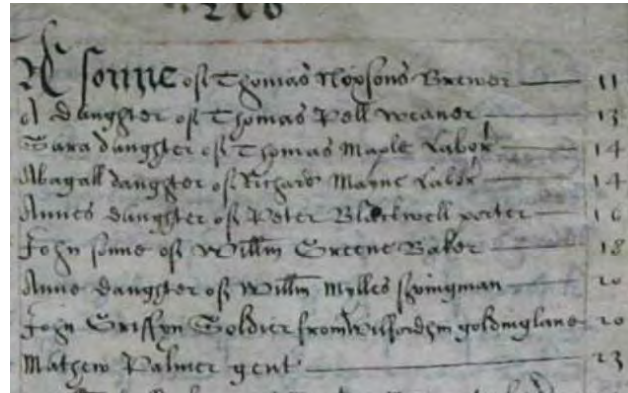 A sonne of Thomas Hopsons Brewer 11
A daughter of Thomas Pell weaver 13
Sara daughter of Thomas Maple Labor 14
Abagall daughter of Richard Mayne Labor 14
Annes daughter of Peter Blackwell porter 16
John sonne of Willm Greene Baker 18
Anne daughter of Willm Mylles 20
John Griffyn Soldier from goldinglane 20
Mathew Palmer gent 23